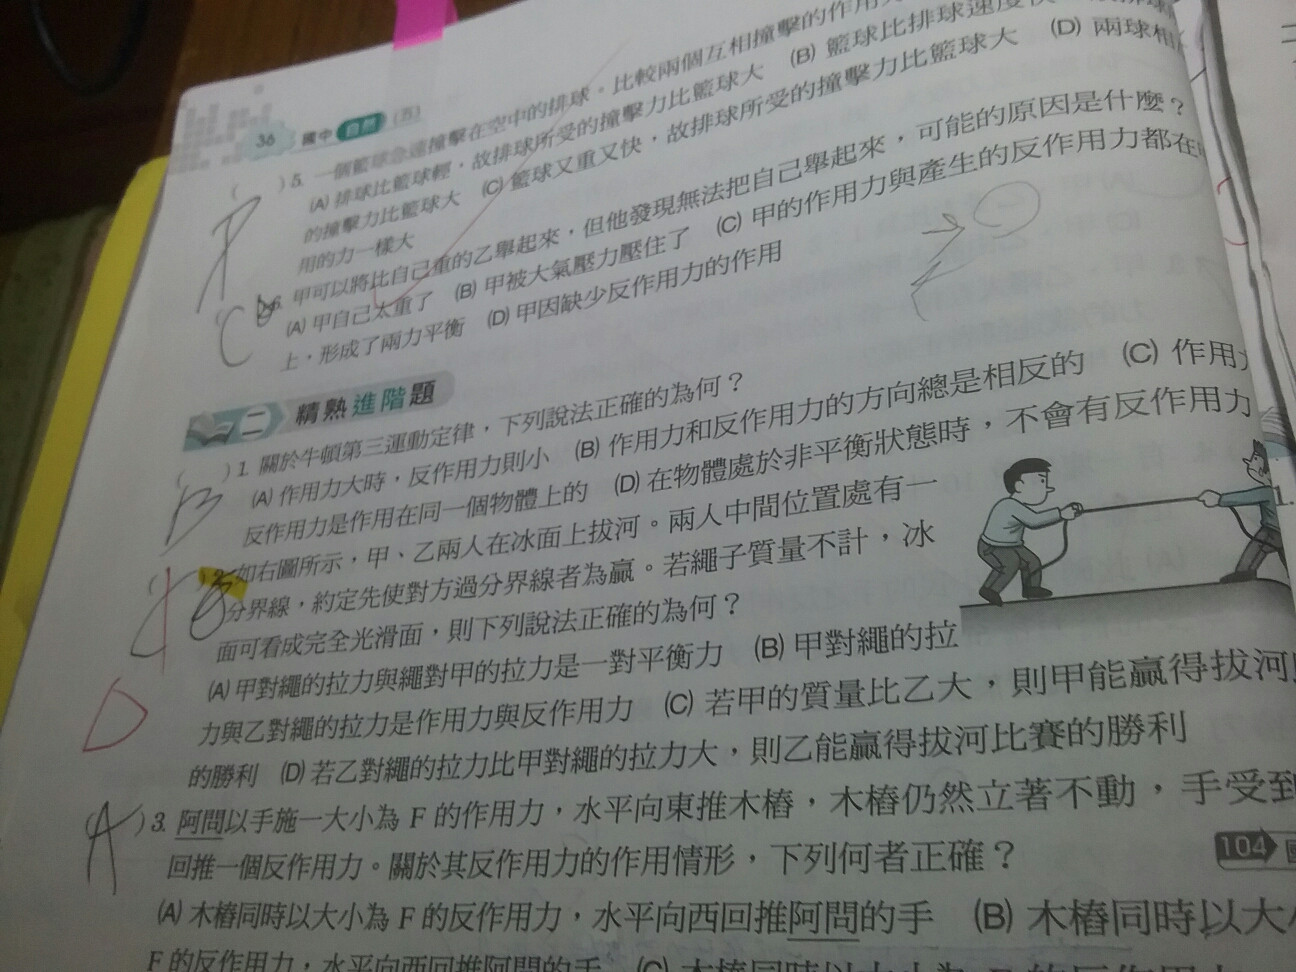 36 國中 自然 (五)
( )5. 一個籃球急速撞擊在空中的排球。比較兩個互相撞擊的作用
(A) 排球比籃球輕，故排球所受的撞擊力比籃球大 (B) 籃球比排球速度
的撞擊力比籃球大 (C) 籃球又重又快，故排球所受的撞擊力比籃球大 (D) 兩球相
用的力一樣大
6. 甲可以將比自己重的乙舉起來，但他發現無法把自己舉起來，可能的原因是什麼？
(A) 甲自己太重了 (B) 甲被大氣壓力壓住了 (C) 甲的作用力與產生的反作用力都在
上，形成了兩力平衡 (D) 甲因缺少反作用力的作用
C
二 精熟進階題
( )1. 關於牛頓第三運動定律，下列說法正確的為何？
(A) 作用力大時，反作用力則小 (B) 作用力和反作用力的方向總是相反的 (C) 作用
反作用力是作用在同一個物體上的 (D) 在物體處於非平衡狀態時，不會有反作用力
B
2. 如右圖所示，甲、乙兩人在冰面上拔河。兩人中間位置處有一
分界線，約定先使對方過分界線者為贏。若繩子質量不計，冰
面可看成完全光滑面，則下列說法正確的為何？
(A) 甲對繩的拉力與繩對甲的拉力是一對平衡力 (B) 甲對繩的拉
力與乙對繩的拉力是作用力與反作用力 (C) 若甲的質量比乙大，則甲能贏得拔河
的勝利 (D) 若乙對繩的拉力比甲對繩的拉力大，則乙能贏得拔河比賽的勝利
D
(A)3. 阿問以手施一大小為 F 的作用力，水平向東推木樁，木樁仍然立著不動，手受到
回推一個反作用力。關於其反作用力的作用情形，下列何者正確？
104
(A) 木樁同時以大小為 F 的反作用力，水平向西回推阿問的手 (B) 木樁同時以大
F 的反作用力，水平向西回推阿問的手 (C)